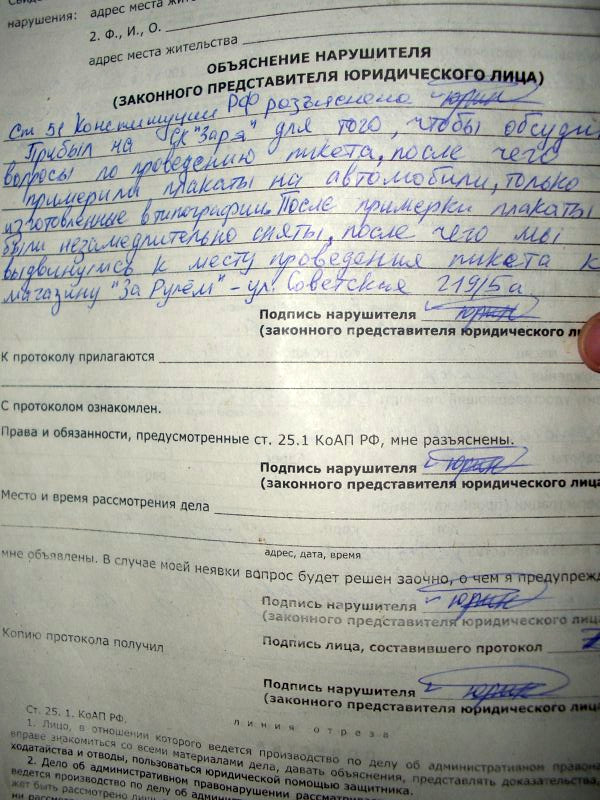 нарушения: адрес места
2. Ф., И., О.
адрес места жительства
ОБЪЯСНЕНИЕ НАРУШИТЕЛЯ
(ЗАКОННОГО ПРЕДСТАВИТЕЛЯ ЮРИДИЧЕСКОГО ЛИЦА)
Ст 51 Конституции РФ разъяснено
Прибыл на "Заря" для того, чтобы обсуди
вопросы по проведению пикета, после чего
примерили плакаты на автомобили, только
изготовленные в типографии. После примерки плакаты
были незамедлительно сняты, после чего мы
выдвинулись к месту проведения пикета к
магазину "За Рулём" - ул. Советская 219/5а
Подпись нарушителя
(законного представителя юридического ли
К протоколу прилагаются
С протоколом ознакомлен.
Права и обязанности, предусмотренные ст. 25.1 КоАП РФ, мне разъяснены.
Подпись нарушителя
(законного представителя юридического лица
Место и время рассмотрения дела
адрес, дата, время
мне объявлены. В случае моей неявки вопрос будет решен заочно, о чем я предупрежд
Подпись нарушителя
(законного представителя юридического лица
Копию протокола получил
Подпись лица, составившего протокол
Подпись нарушителя
(законного представителя юридического лица
Ст. 25. 1. КоАП РФ.
линия отреза
1. Лицо, в отношении которого ведется производство по делу об административном правона
вправе знакомиться со всеми материалами дела, давать объяснения, представлять доказательства,
ходатайства и отводы, пользоваться юридической помощью защитника.
2. Дело об административном правонарушении рассматривает
ведется производство по делу об админи
жет быть рассмотрено лишь